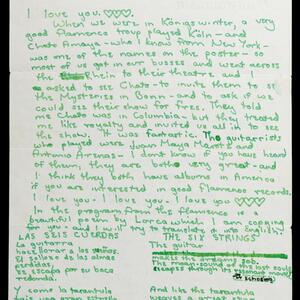 I love you. ♡♡♡
When we were in Königswinter, a very
good flamenco troup played Köln - and
Chato Amaya - who I know from New York -
was one of the names on the poster - so
most of us got in our busses and went across
the Rhein to their theatre and I
asked to see Chato - to invite them to see
the Mysteries in Bonn - and to ask if we
could see their show for free. They told
me Chato was in Columbia - but they treated
me like royalty and invited us all in to see
the show. It was fantastic. The guitarists
who played were Juan Maya Marote and
Antonio Arenas - I don't know if you have heard
of them; they are both very great - and
I think they both have albums in America
if you are interested in good flamenco records.
I love you - I love you - I love you ♡♡♡
In the program from the flamenco is a
beautiful poem by Lorca which I am copying
for you - and I will try to translate it into English:
LAS SEIS CUERDAS
La guitarra
hace llorar a los sueños.
El sollozo de las almas
perdidas,
se escapa por su boca
redonda.
Y como la tarántula
THE SIX STRINGS
The guitar
makes dreams sob.
The moan of the lost souls
escapes through its round mouth.
And like the tarantula